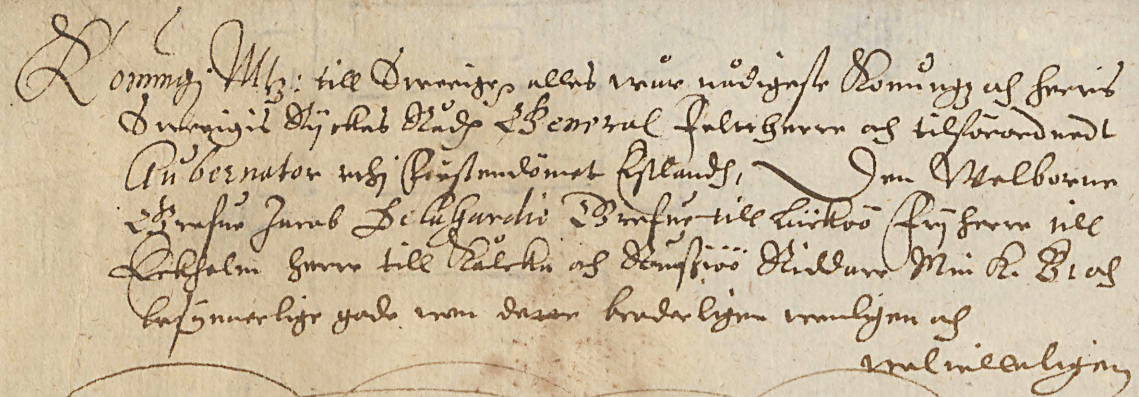 Konungz Mtz: till Swerigez alles wår nådigeste Konungz och herris
Sweriges Rijckes Rådz General Feltherre och tilförordnedt
Gubernator vthj Fürstendömet Estlandh, Den Welborne
Grefue Jacob De la Gardie Grefue till Läcköö Frijherre till
Eekholm herre till Kålcka och Runssiöö Riddare Min K. Br och
besynnerlige gode wen detta broderligen wenligen och
welwilleligen